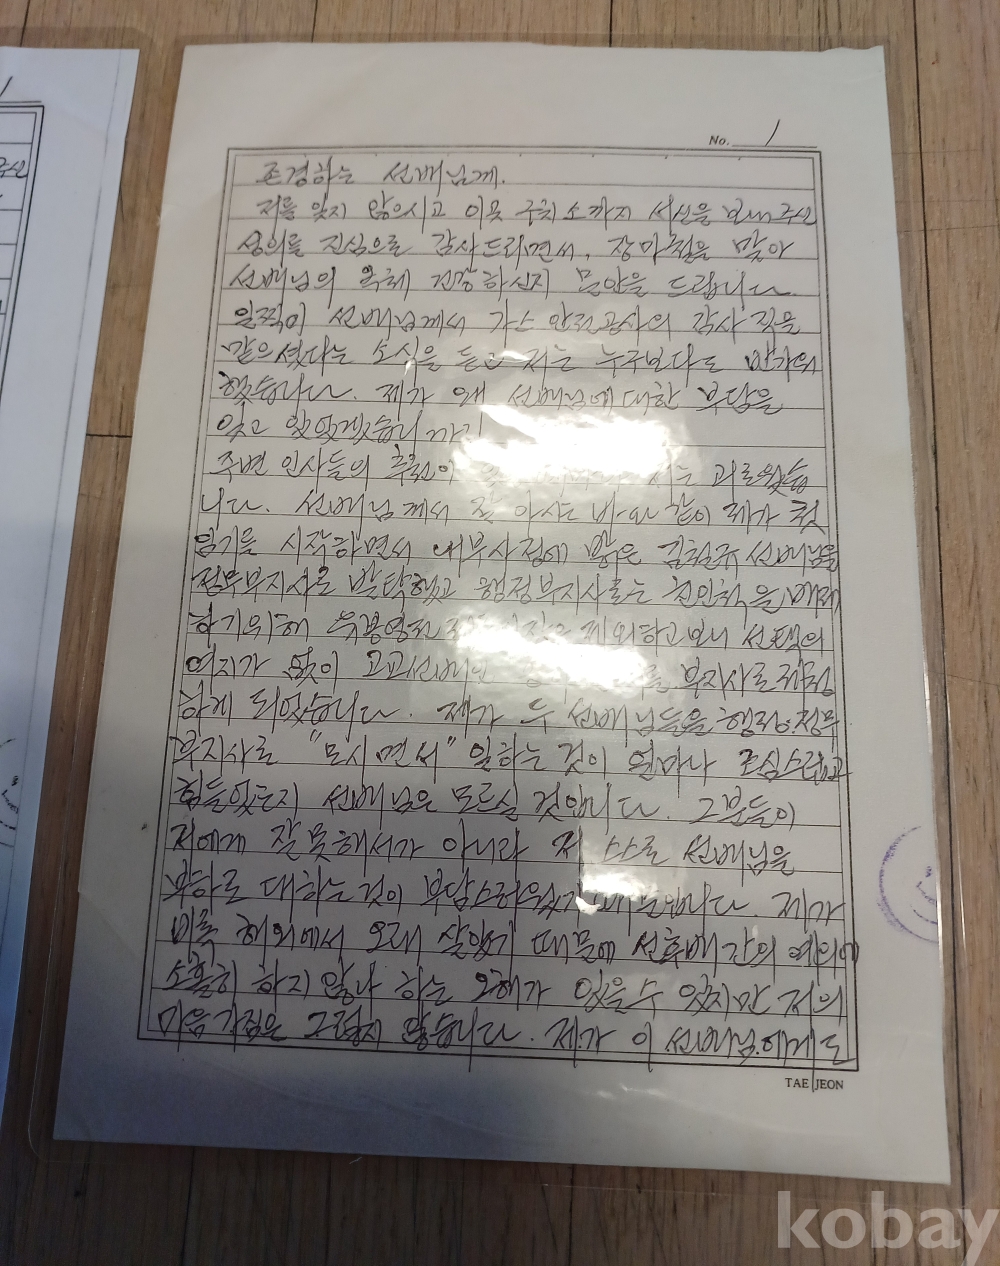 No. 1
존경하는 선배님께.
저를 잊지 않으시고 이곳 구치소까지 서신을 보내주신
성의를 진심으로 감사드리면서, 장마철을 맞아
선배님의 옥체 건강하신지 문안을 드립니다.
일찍이 선배님께서 가스안전공사의 감사직을
맡으셨다는 소식을 듣고 저는 누구보다도 반가워
했습니다. 제가 왜 선배님에 대한 부담을
잊고 있었겠습니까?
주변 인사들의 추천이 저는 괴로웠습
니다. 선배님께서 잘 아시는 바와 같이 제가 첫
임기를 시작하면서 내부사정에 밝은 선배님을
정무부지사로 발탁했고 행정부지사로는
하기위해 제외하고보니 선택의
여지가 없이 고교선배인 부지사로
하게 되었습니다. 제가 두 선배님들을 행정.정무
부지사로 "모시면서" 일하는 것이 얼마나 조심스럽고
힘들었든지 선배님은 모르실 것입니다. 그분들이
저에게 잘못해서가 아니라 저 스스로 선배님을
부하로 대하는 것이 부담스러웠기 때문입니다. 제가
비록 해외에서 오래 살았기 때문에 선후배간의 예의에
소홀히 하지않나 하는 오해가 있을수 있지만 저의
마음가짐은 그렇지 않습니다. 제가 이 선배님에게도
TAE JEON
kobay